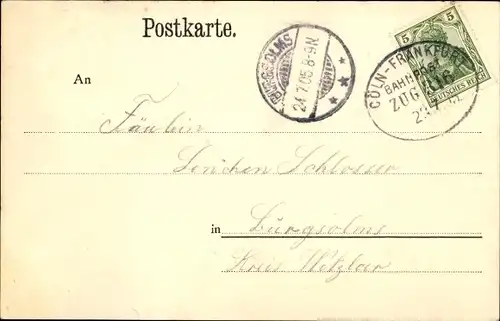 Postkarte.
BURGSOLMS
24.7.05 8-9N.
5 5
DEUTSCHES REICH
CÖLN-FRANKFURT
BAHNPOST
ZUG
An
Fräulein
Lenchen Schlosser
in Burgsolms
Kreis Wetzlar